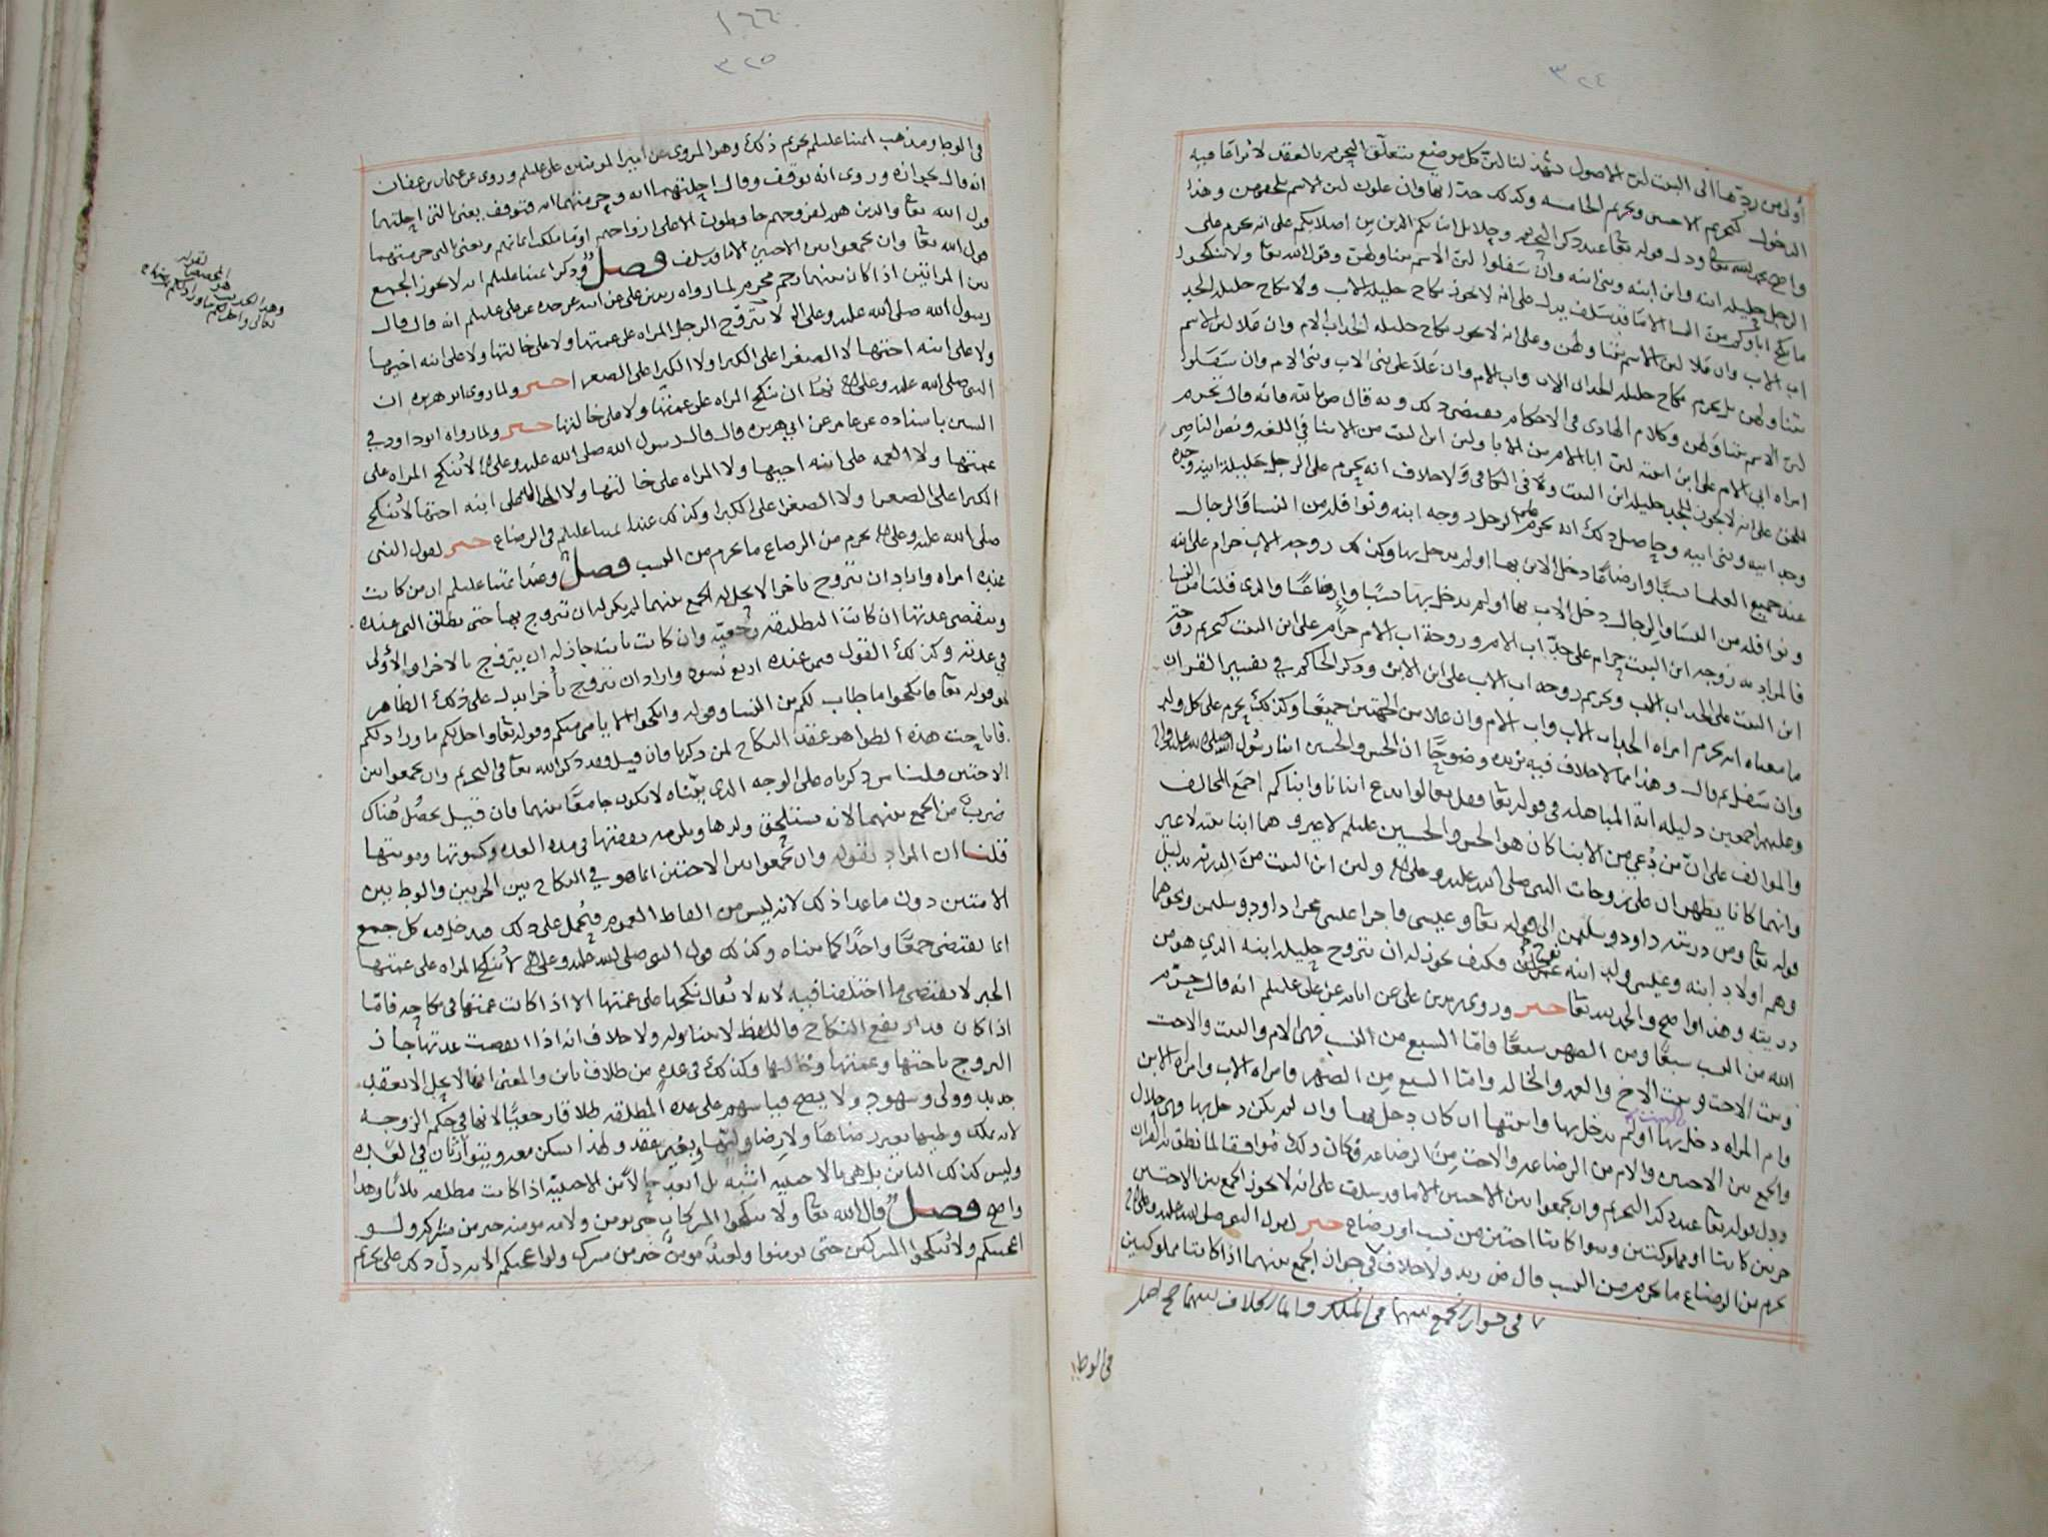 ٣٢٤
أولى من ردها الى البنت لان الاصول تشهد لنا لان كل موضع يتعلق التحريم بالعقد لا يراعا فيه
الدخول كتحريم الاختين وتحريم الخامسه وكذلك حدانها وان علون لان الاسم يلحقهن وهذا
واضح بحمد الله تعا ودل قوله تعا عند ذكر التحريم وحلائل ابنائكم الذين من اصلابكم على انه يحرم على
الرجل حليله ابنه وابن ابنه وبني ابنه وان سفلوا لان الاسم يتناولهن وقول الله تعا ولا تنكحوا
ما نكح اباؤكم من النسا الا ما قد سلف يدل على انه لا يجوز نكاح حليله الاب ولا نكاح حليله الجد
اب الاب وان علا لان الاسم يتناولهن وعلى انه لا يجوز نكاح حليله الجد اب الام وان علا لان الاسم
يتناولهن بل يحرم نكاح حليله الجد اب الاب واب الام وان علا على بني الاب وبني الام وان سفلوا
لان الاسم يتناولهن وكلام الهادي في الاحكام يقتضي ذلك وبه قال ص بالله فانه قال تحرم
امراه ابي الام على ابن ابنته لان ابا الام من الابا ولان ابن البنت من الابنا في اللغه ونص الناصر
للحق على انه لا يجوز للجد حليله ابن البنت ولا في الكافي ولا خلاف انه يحرم على الرجل حليلة ابنه وجده
وجد ابيه وبني ابيه وحاصل ذلك انه يحرم على الرجل زوجه ابنه ونوافله من النسا والرجال
عند جميع العلما نسبا وارضاعا دخل الابن بها او لم يدخل بها وكذلك زوجه الاب حرام على ابنه
ونوافله من النسا والرجال دخل الاب بها او لم يدخل بها نسبا وارضاعا والذي قلنا من النسا
فالمراد به زوجه ابن البنت حرام على جد اب الام وزوجة اب الام حرام على ابن البنت كتحريم زوجة
ابن البنت على الجد اب الاب وتحريم زوجه اب الاب على ابن الابن وذكر الحاكم في تفسير القران
ما معناه انه يحرم امراه الجد اب الاب واب الام وان علا من الجهتين جميعا وكذلك يحرم على كل ولد
وان سفل ثم قال وهذا مما لا خلاف فيه يزيده وضوحا ان الحسن والحسين ابنا رسول الله صلى الله عليه واله
وعليهم اجمعين دليله اية المباهله في قوله تعا فقل تعالوا ندع ابنانا وابناكم اجمع المخالف
والموالف على ان من دعي من الابنا كان هو الحسن والحسين عليلم لا غير وهما ابنا بنته لا غير
وانهما كانا يظهران على زوجات النبي صلى الله عليه وعلى اله ولان ابن البنت من الذريه بدليل
قوله تعا ومن ذريته داود وسليمن الى قوله تعا وعيسى فاجرا عيسى مجرا داود وسليمن ونحوهما
وهم اولاد ابنه وعيسى ولد ابنه فكيف يجوز له ان يتزوج حليله ابنه الذي هو من
ذريته وهذا واضح والحمد لله تعا خبر وروى زيد بن علي عن ابائه عن علي عليلم انه قال حرم
الله من النسب سبعا ومن الصهر سبعا فاما السبع من النسب فهي الام والبنت والاخت
وبنت الاخت وبنت الاخ والعمه والخاله واما السبع من الصهر فامراه الاب وامراه الابن
وام المراه دخل بها او لم يدخل بها وابنتها ان كان دخل بها وان لم يكن دخل بها فهي حلال
والجمع بين الاختين والام من الرضاعه والاخت من الرضاعه فكان ذلك موافقا لما نطق به القران
ودل قوله تعا عند ذكر التحريم وان تجمعوا بين الاختين الا ما قد سلف على انه لا يجوز الجمع بين الاختين
حرتين كانتا او مملوكتين وسوا كانتا اختين من نسب او رضاع خبر لقول النبي صلى الله عليه وعلى اله
يحرم من الرضاع ما يحرم من النسب قال ص زيد ولا خلاف في جواز الجمع بينهما اذا كانتا مملوكتين
في جواز الجمع بينهما في الملك وانما الخلاف بينهما صح اصل
في الوطا
١٦٦
٣٢٥
في الوطا ومذهب ائمتنا عليلم تحريم ذلك وهو المروي عن امير المومنين علي عليلم وروي عن عثمان بن عفان
انه قال بجوازه وروي انه توقف وقال احلتهما ايه وحرمتهما ايه فتوقف يعني بالتي احلتهما
قول الله تعا والذين هم لفروجهم حافظون الا على ازواجهم او ما ملكت ايمانهم ويعني بالتي حرمتهما
قول الله تعا وان تجمعوا بين الاختين الا ما قد سلف فصل وذكر ائمتنا عليلم انه لا يجوز الجمع
بين المراتين اذا كان بينهما رحم محرم لما رواه زيد بن علي عن ابيه عن جده عن علي عليلم انه قال قال
رسول الله صلى الله عليه وعلى اله لا يتزوج الرجل المراه على عمتها ولا على خالتها ولا على ابنه اخيها
ولا على ابنه اختها لا الصغرا على الكبرا ولا الكبرا على الصغرا خبر ولما روى ابو هريره ان
النبي صلى الله عليه وعلى اله نهى ان تنكح المراه على عمتها ولا على خالتها خبر ولما رواه ابو داود في
السنن باسناده عن عامر عن ابي هريره قال قال رسول الله صلى الله عليه وعلى اله لا تنكح المراه على
عمتها ولا العمه على ابنه اخيها ولا المراه على خالتها ولا الخاله على ابنه اختها لا تنكح
الكبرا على الصغرا ولا الصغرا على الكبرا وكذلك عند ائمتنا عليلم في الرضاع خبر لقول النبي
صلى الله عليه وعلى اله يحرم من الرضاع ما يحرم من النسب فصل وعند ائمتنا عليلم ان من كانت
عنده امراه واراد ان يتزوج باخرا لا يحل له الجمع بينهما لم يكن له ان يتزوج بها حتى يطلق التي عنده
وتنقضي عدتها ان كانت التطليقه رجعيه وان كانت باينه جاز له ان يتزوج بالاخرا والأولى
في عدته وكذلك القول فيمن عنده اربع نسوه واراد ان يتزوج باخرا يدل على ذلك الظاهر
نحو قوله تعا فانكحوا ما طاب لكم من النسا وقوله وانكحوا الايامى منكم وقوله تعا واحل لكم ما ورا ذلكم
فاباحت هذه الظواهر عقد النكاح لمن ذكرنا فان قيل فقد ذكر الله تعا في التحريم وان تجمعوا بين
الاختين قلنا من ذكرناه على الوجه الذي بيناه لا يكون جامعا بينهما فان قيل يحصل هناك
ضرب من الجمع بينهما لانه يستلحق ولدها ويلزمه نفقتها في مده العده وكسوتها ومونتها
قلنا ان المراد بقوله وان تجمعوا بين الاختين انما هو في النكاح بين الحرتين والوطا بين
الامتين دون ما عدا ذلك لانه ليس من الفاظ العموم فيحمل على ذلك فيدخل فيه كل جمع
انما يقتضي جمعا واحدا كما بيناه وكذلك قول النبي صلى الله عليه وعلى اله لا تنكح المراه على عمتها
الخبر لا يقتضي ما اختلفنا فيه لانه لا يقال نكحها على عمتها الا اذا كانت عمتها في نكاحه فاما
اذا كان قد ارتفع النكاح فاللفظ لا يتناوله ولا خلاف انه اذا انقضت عدتها جاز
التزوج باختها وعمتها وخالتها وكذلك في عده من طلاق باين والمعنى انها لا تحل الا بعقد
جديد وولي وشهود ولا يصح قياسهم على عده المطلقه طلاقا رجعيا لانها في حكم الزوجه
لانه يملك وطيها بغير رضاها ولا رضا وليها وبغير عقد ولهذا تسكن معه ويتوارثان في العده
وليس كذلك الباين بل هي بالاجنبيه اشبه بل ابعد حالا من الاجنبيه اذا كانت مطلقه ثلاثا وهذا
واضح فصل قال الله تعا ولا تنكحوا المشركات حتى يومن ولامه مومنه خير من مشركه ولو
اعجبتكم ولا تنكحوا المشركين حتى يومنوا ولعبد مومن خير من مشرك ولو اعجبكم الايه دل ذلك على تحريم